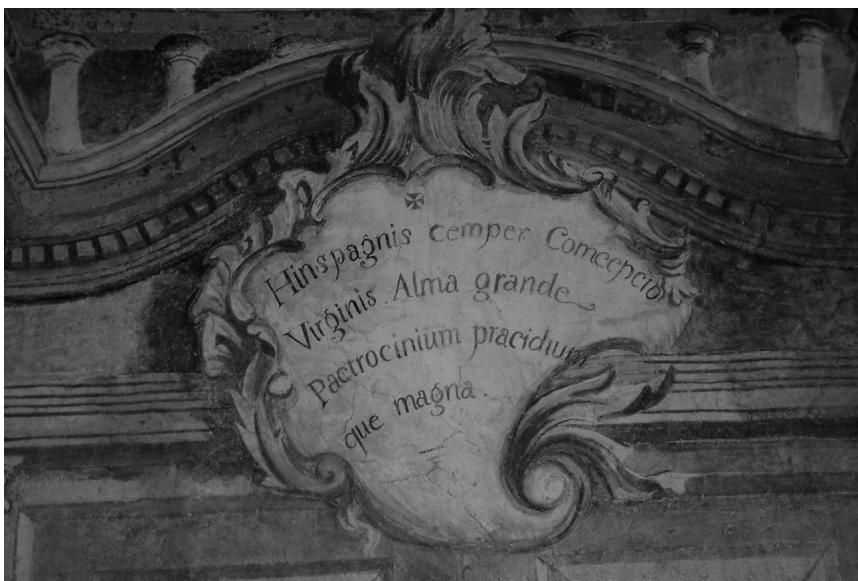 Hinspagnis cemper Comcepcio
Virginis. Alma grande
Pactrocinium pracidium
que magna.